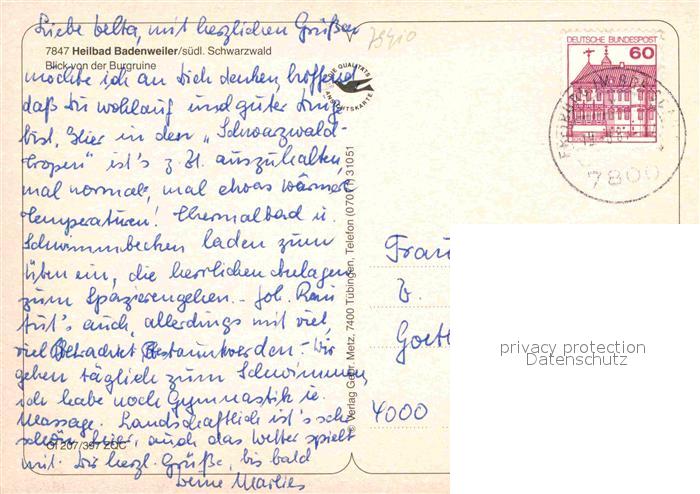 Liebe Delta, mit herzlichen Grüßen
7847 Heilbad Badenweiler/südl. Schwarzwald
Blick von der Burgruine
möchte ich an Dich denken, hoffend
daß Du wohlauf und guter Dinge
bist. Hier in den „Schwarzwald-
tropen" ist's z. Zt. auszuhalten,
mal normale, mal etwas wärmere
Temperaturen! Thermalbad u.
Schwimmbecken laden zum
Üben ein, die herrlichen Anlagen
zum Spazierengehen. –
tut's auch, allerdings mit viel,
viel
gehen täglich zum Schwimmen,
ich habe noch Gymnastik u.
Massage. Landschaftlich ist's sehr
schön hier, auch das Wetter spielt
GI 207/397 ZQC
mit. Dir herzl. Grüße, bis bald
Deine Marlies
© Verlag Gebr. Metz, 7400 Tübingen, Telefon (07071) 31051
DIE QUALITÄTS
ANSICHTSKARTE
DEUTSCHE BUNDESPOST
60
7800
Frau
Goet
4000
privacy protection
Datenschutz